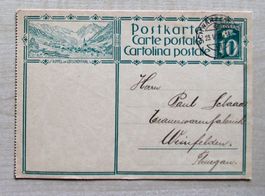 Postkarte
Carte postale
Cartolina postale
10
Herrn
Paul Schaad
Weinfelden.
Thurgau.